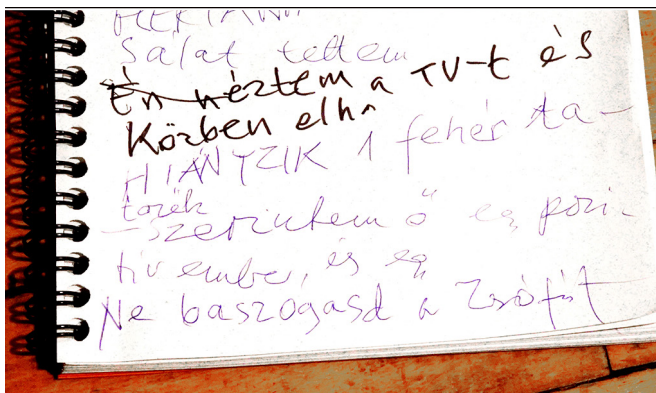 Salat tettem
Én néztem a TV-t és
Közben elh
HIÁNYZIK 1 fehér ta-
torék
-szerintem ő eg pozi-
tiv ember, és eg
Ne baszogasd a Zsófit